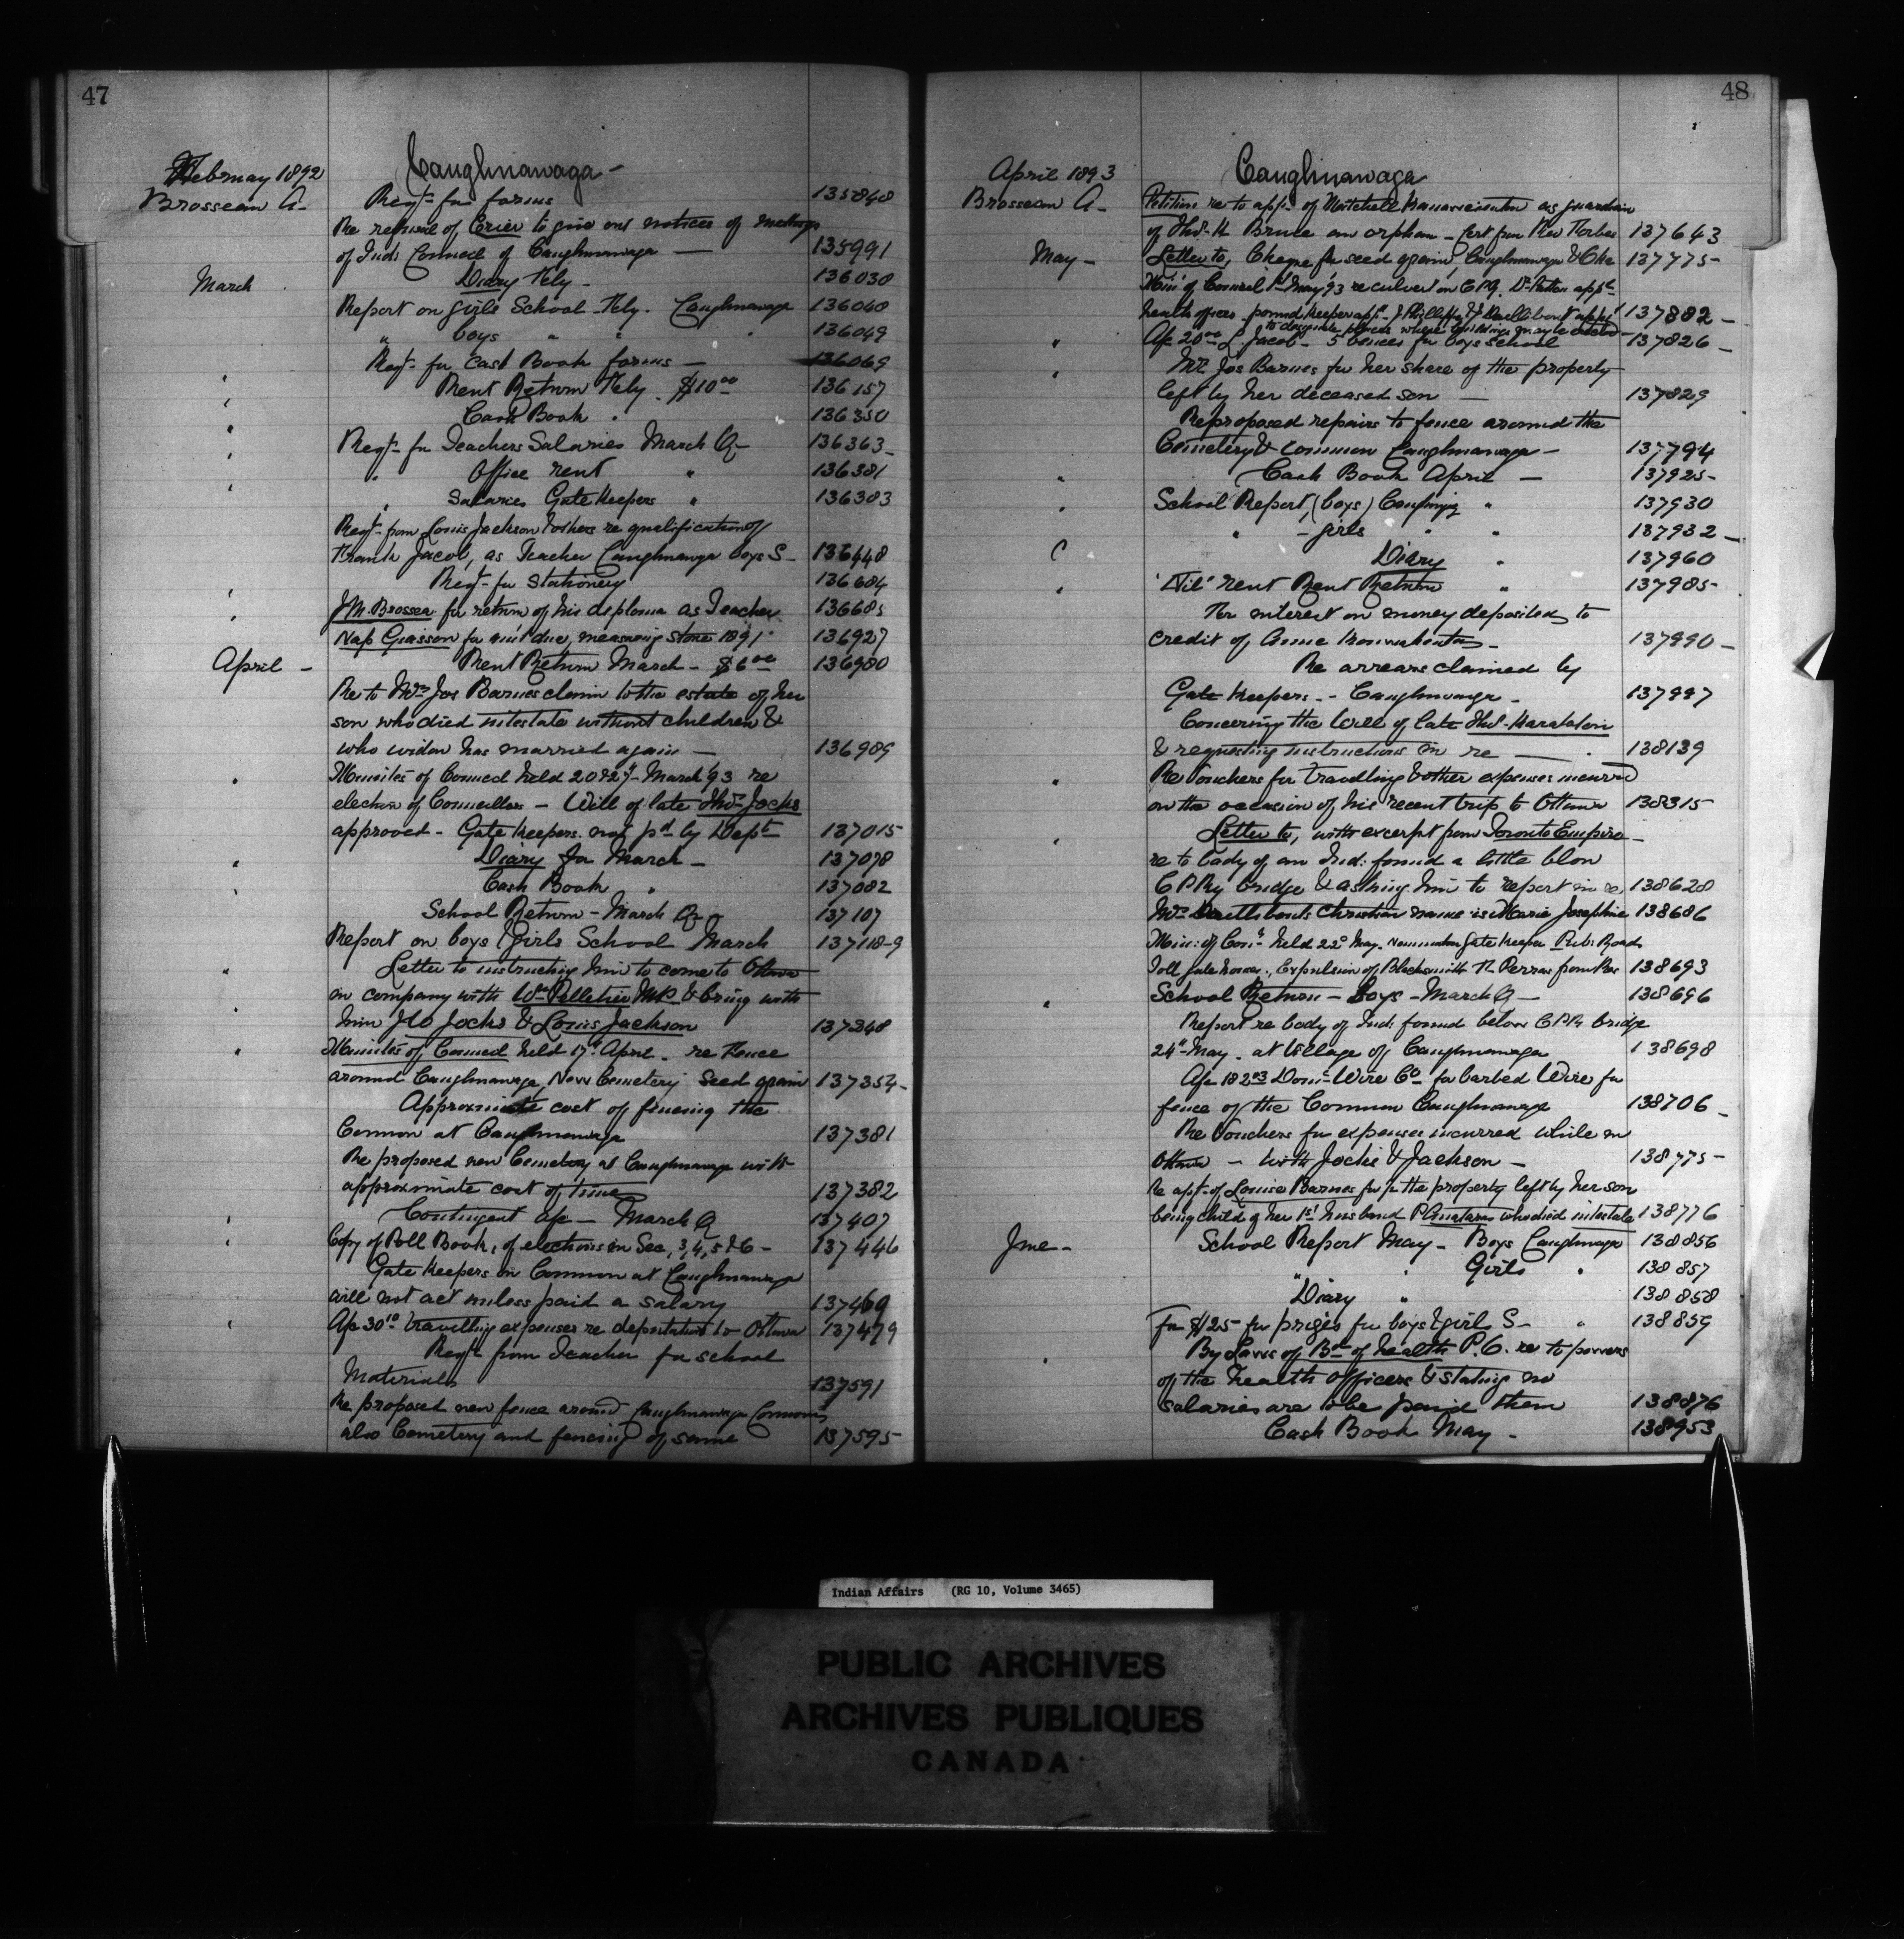 47
February 1892
Caughnawaga -
Brosseau A-
Reqt- for forms 135848
Re refusal of Crier to give out notices of meetings
of Ind: Council of Caughnawaga - 135991
March
Diary Feby - 136030
Report on girls School - Feby. Caughnawaga 136048
" boys " " " 136049
Reqt- for Cash Book forms - 136069
Rent Return Feby - $110 00 136157
Cash Book " 136350
Reqt- for Teachers Salaries March Q- 136363-
" Office rent " 136381
" Salaries Gate Keepers " 136383
Reqt- from Louis Jackson & others re qualification of
Frank Jacob, as Teacher Caughnawaga boys S- 136448
Reqt- for Stationery 136604
J.M. Brossea for return of his diploma as Teacher 136685
Nap Giasson for amt due, measuring stone 1891 136927
April -
Rent Return March - $6 00 136980
Re to Mrs Jos Barnes claim to the estate of her
son who died intestate without children &
who widow has married again - 136989
Minutes of Council held 20 & 27- March '93 re
election of Councillors - Will of late Thos Jocks
approved - Gate Keepers not pd by Dept 137015
Diary for March - 137078
Cash Book " 137082
School Return - March Qr 137107
Report on boys & girls School March 137118-9
Letter to instructing him to come to Ottawa
in company with Wm Pelletier M.P. & bring with
him J.O Jocks & Louis Jackson 137248
Minutes of Council held 17th April - re Fence
around Caughnawaga, New Cemetery Seed grain 137354-
Approximate cost of fencing the
Common at Caughnawaga 137381
Re proposed new Cemetery at Caughnawaga with
approximate cost of same 137382
Contingent a/c - March Q 137407
Copy of Poll Book, of elections in Sec, 3, 4, 5 & 6 - 137446
Gate Keepers on Common at Caughnawaga
will not act unless paid a salary 137469
A/c 30 10 travelling expenses re deputation to Ottawa 137479
Reqt from Teacher for school
Materials 137591
Re proposed new fence around Caughnawaga Common
also Cemetery and fencing of same 137595
48
April 1893
Caughnawaga
Brosseau A-
Petition re to app- of Mitchell as guardian
of Thos- K Bruce an orphan - Cert from Rev Forbes 137643
May -
Letter to, Cheque for seed grain, Caughnawaga & Oka 137775
Min: of Council 1st May '93 re culvert on C.P.Q. Dr Patton appt
health officer - pound Keeper appt- J Phillips & J Dailleboust appt
to designate places where buildings may be 137882-
A/c 20 00 L. Jacob - 5 bences for boys School 137826-
Mrs Jos Barnes for her share of the property
left by her deceased son - 137829
Re proposed repairs to fence around the
Cemetery & Common Caughnawaga - 137794
Cash Book April - 137925-
School Report, (boys) Caughnag " 137930
" - girls " " 137932-
Diary " 137960
'Nil' rent Rent Return " 137985-
For interest on money deposited to
credit of Anne - 137990-
Re arrears claimed by
Gate Keepers - Caughnawaga - 137997
Concerning the Will of late Thos- Karatoton
& requesting instructions in re - 138139
Re Vouchers for travelling & other expenses incurred
on the occasion of his recent trip to Ottawa 138315-
Letter to, with excerpt from Toronto Empire -
re to body of an Ind: found a little blow
C P Ry bridge & asking him to report in re, 138628
Mrs Dailleboust's Christian name is Marie Josephine 138686
Min: of Conl held 22d May. Nomination Gate Keeper Pub: Roads
Toll Gate house, Expulsion of Blacksmith T. Perras from Res 138693
School Return - Boys - March Q - 138696
Report re body of Ind: found below C P R bridge
24th May - at Village of Caughnawaga 138698
A/c 182 93 Domn Wire Co for barbed Wire for
fence of the Common Caughnawaga 138706-
Re Vouchers for expenses incurred while in
Ottawa - with Jocks & Jackson - 138775-
Re appt- of Louise Barnes for the property left by her son
being child of her 1st husband P. who died intestate 138776
June -
School Report May - Boys Caughnaga 138856
" " Girls " 138857
Diary " 138858
For $125 for prizes for boys & girls S- " 138859
By Laws of Bd of health P.Q. re to powers
of the health Officers & stating no
salaries are to be paid them 138876
Cash Book May - 138953
Indian Affairs (RG 10, Volume 3465)
PUBLIC ARCHIVES
ARCHIVES PUBLIQUES
CANADA